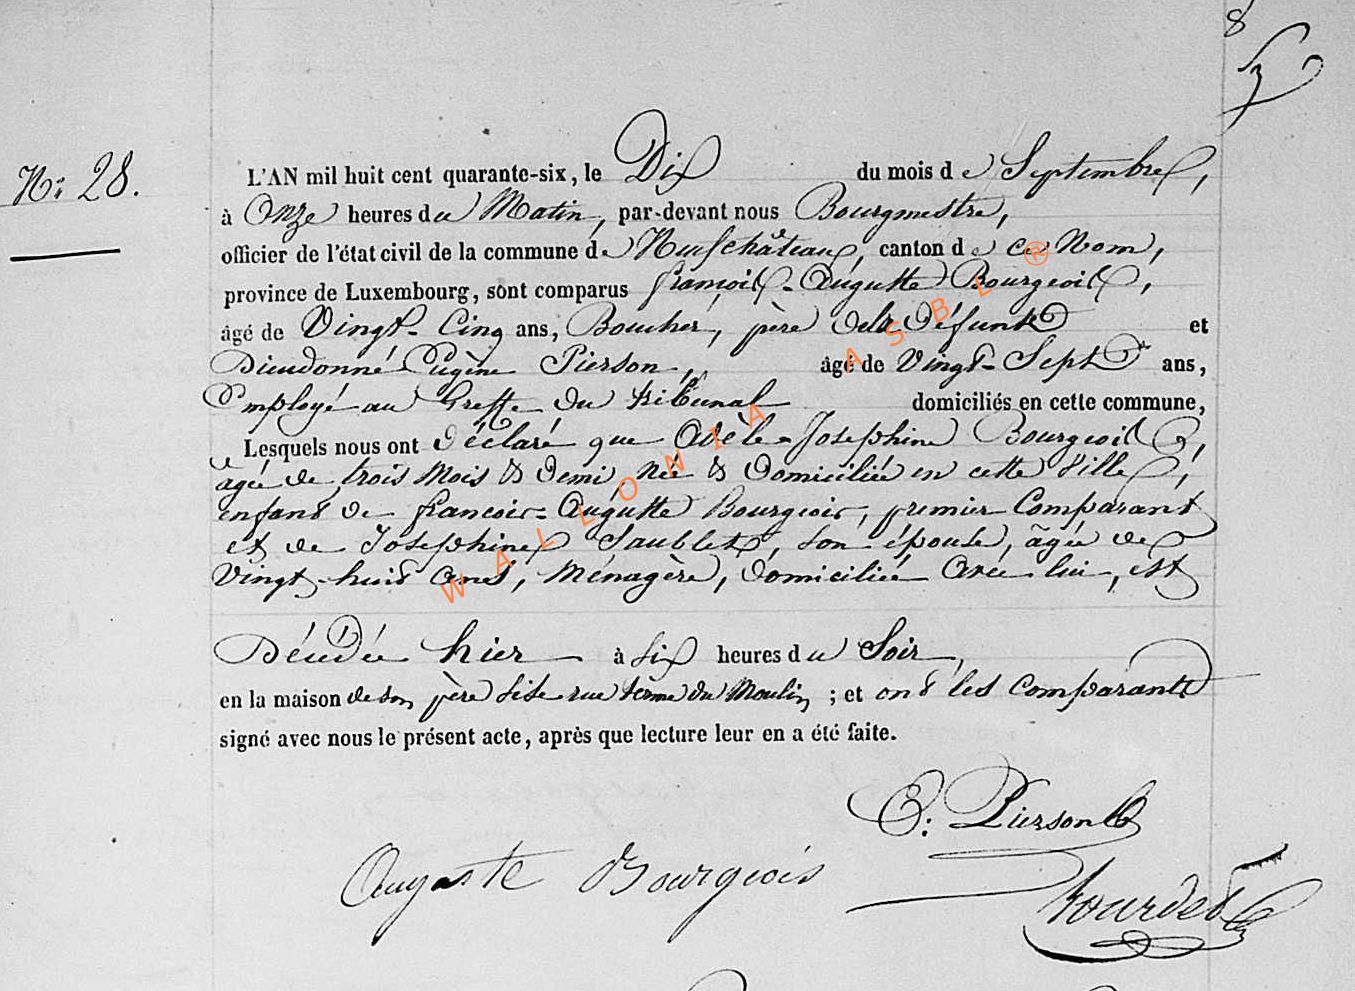 8
Nº 28.
L'AN mil huit cent quarante-six, le Dix du mois de Septembre,
à Onze heures du Matin, par-devant nous Bourgmestre,
officier de l'état civil de la commune de Neufchâteau, canton de ce Nom,
province de Luxembourg, sont comparus françois-Auguste Bourgeois,
âgé de Vingt-Cinq ans, Boucher, père dela défunte et
Dieudonné Eugène Pierson, âgé de Vingt-Sept ans,
Employé au Greffe du tribunal domiciliés en cette commune,
Lesquels nous ont déclaré que Adèle-Josephine Bourgeois,
agée de trois Mois & demi, née & domiciliée en cette Ville,
enfant de francois-Auguste Bourgeois, premier Comparant
et de Josephine Saublet, son épouse, agée de
Vingt-huit Ans, Ménagère, domiciliée Avec lui, est
Décédée hier à six heures du Soir,
en la maison de son père sise rue terme du Moulin ; et ont les Comparants
signé avec nous le présent acte, après que lecture leur en a été faite.
E. Pierson
Auguste Bourgeois
WALLONIA ASBL ®